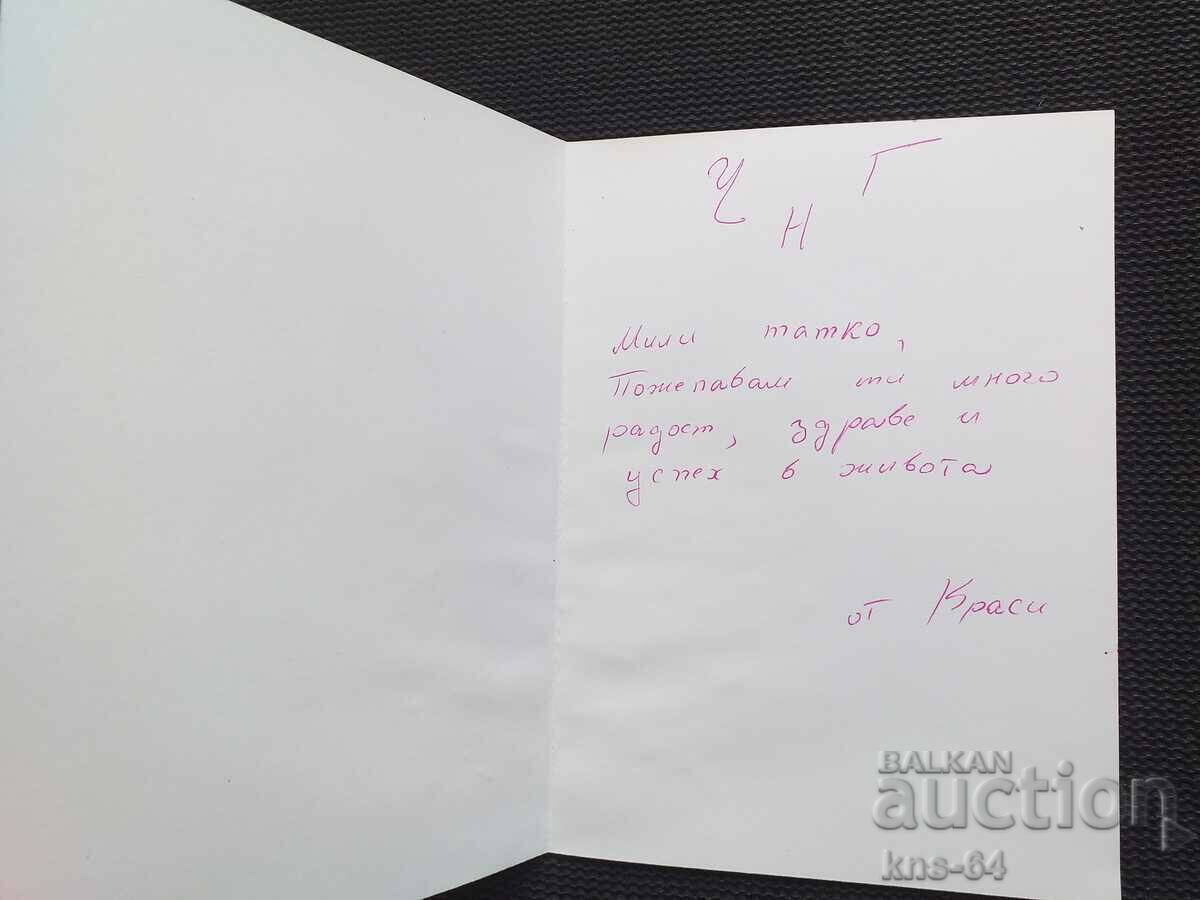 Ч Н Г
Мили татко,
Пожелавам ти много
радост, здраве и
успех в живота
от Краси
BALKAN
auction
kns-64